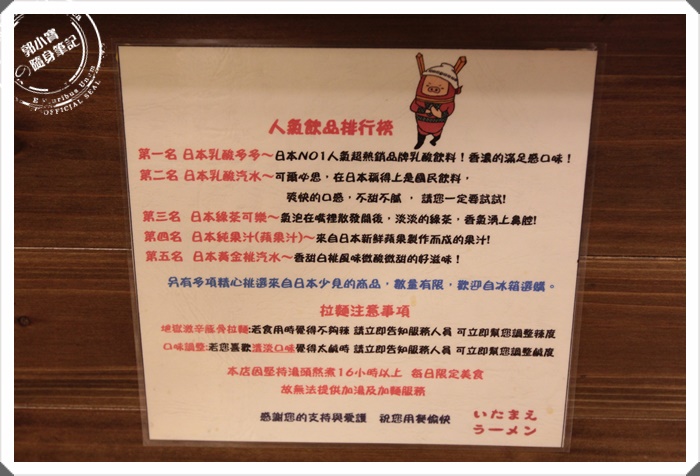 郭小寶
の隨身筆記
E Pluribus Unum
OFFICIAL SEAL
人氣飲品排行榜
第一名 日本乳酸多多～日本NO1人氣超熱銷品牌乳酸飲料！香濃的滿足感口味！
第二名 日本乳酸汽水～可爾必思，在日本稱得上是國民飲料，
爽快的口感，不甜不膩 ， 請您一定要試試!
第三名 日本綠茶可樂～氣泡在嘴裡散發開後，淡淡的綠茶，香氣湧上鼻腔!
第四名 日本純果汁(蘋果汁)～來自日本新鮮蘋果製作而成的果汁!
第五名 日本黃金桃汽水～香甜白桃風味微酸微甜的好滋味！
另有多項精心挑選來自日本少見的商品，數量有限，歡迎自冰箱選購。
拉麵注意事項
地獄激辛豚骨拉麵:若食用時覺得不夠辣 請立即告知服務人員 可立即幫您調整辣度
口味調整:若您喜歡清淡口味覺得太鹹時 請立即告知服務人員 可立即幫您調整鹹度
本店因堅持湯頭熬煮16小時以上 每日限定美食
故無法提供加湯及加麵服務
感謝您的支持與愛護 祝您用餐愉快
いたまえ
ラーメン